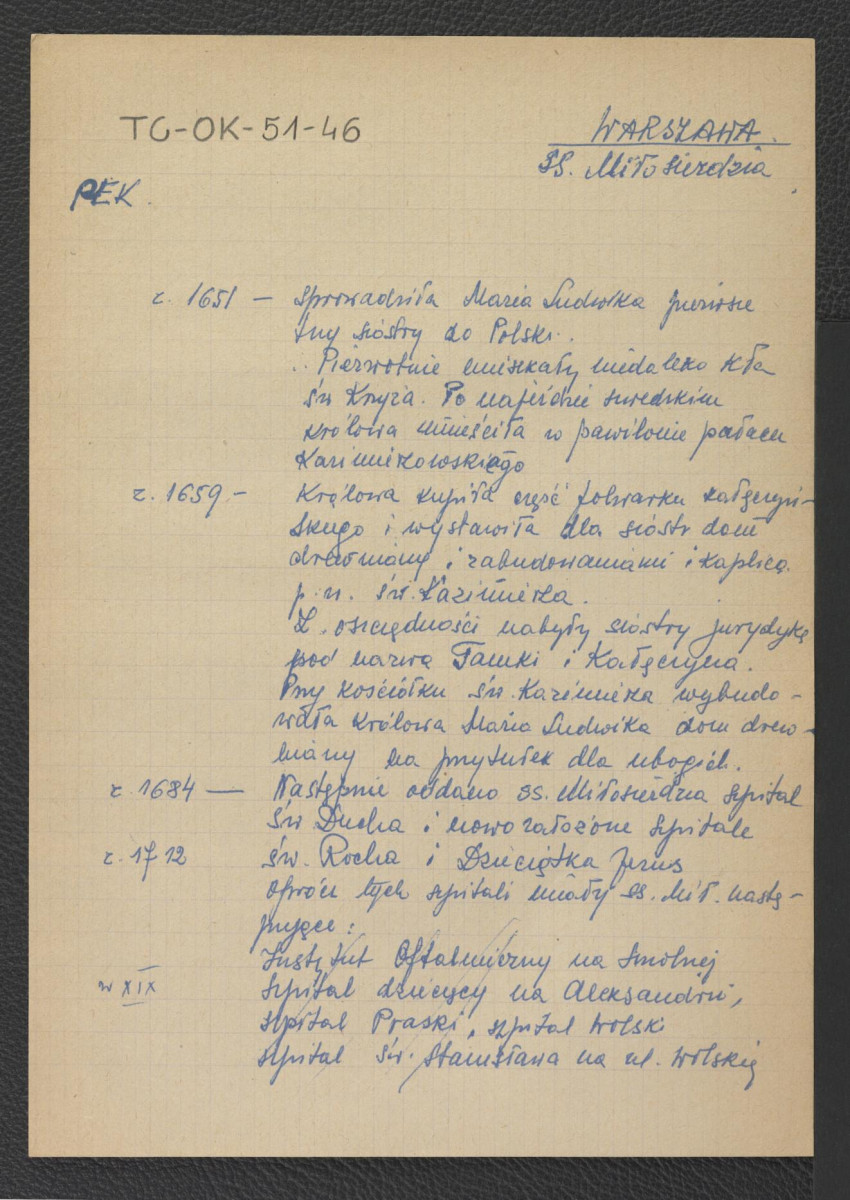 TC-OK-51-46
WARSZAWA.
SS. Miłosierdzia
PEK.
r. 1651 — sprowadziła Maria Ludwika pierwsze
trzy siostry do Polski.
Pierwotnie mieszkały niedaleko kła
św Krzyża. Po najeździe szwedzkim
królowa umieściła w pawilonie pałacu
Kazimierzowskiego
r. 1659 - Królowa kupiła część folwarku kałęczyń-
skiego i wystawiła dla sióstr dom
drewniany i zabudowaniami i kaplicą
p.w. św. Kazimierza.
Z oszczędności nabyły siostry jurydykę
pod nazwą Tamki i Kałęczyna.
Przy kościółku św. Kazimierza wybudo-
wała królowa Maria Ludwika dom drew-
niany na przytułek dla ubogich.
r. 1684 — Następnie oddano ss. Miłosierdzia szpital
św Ducha i nowo założone szpitale
r. 1712 św. Rocha i Dzieciątka Jezus
oprócz tych szpitali miały ss. Mił. nastę-
pujące:
Instytut Oftalmiczny na Smolnej
w XIX szpital dziecięcy na Aleksandrii,
szpital Praski, szpital Wolski
szpital św. Stanisława na ul. Wolskiej